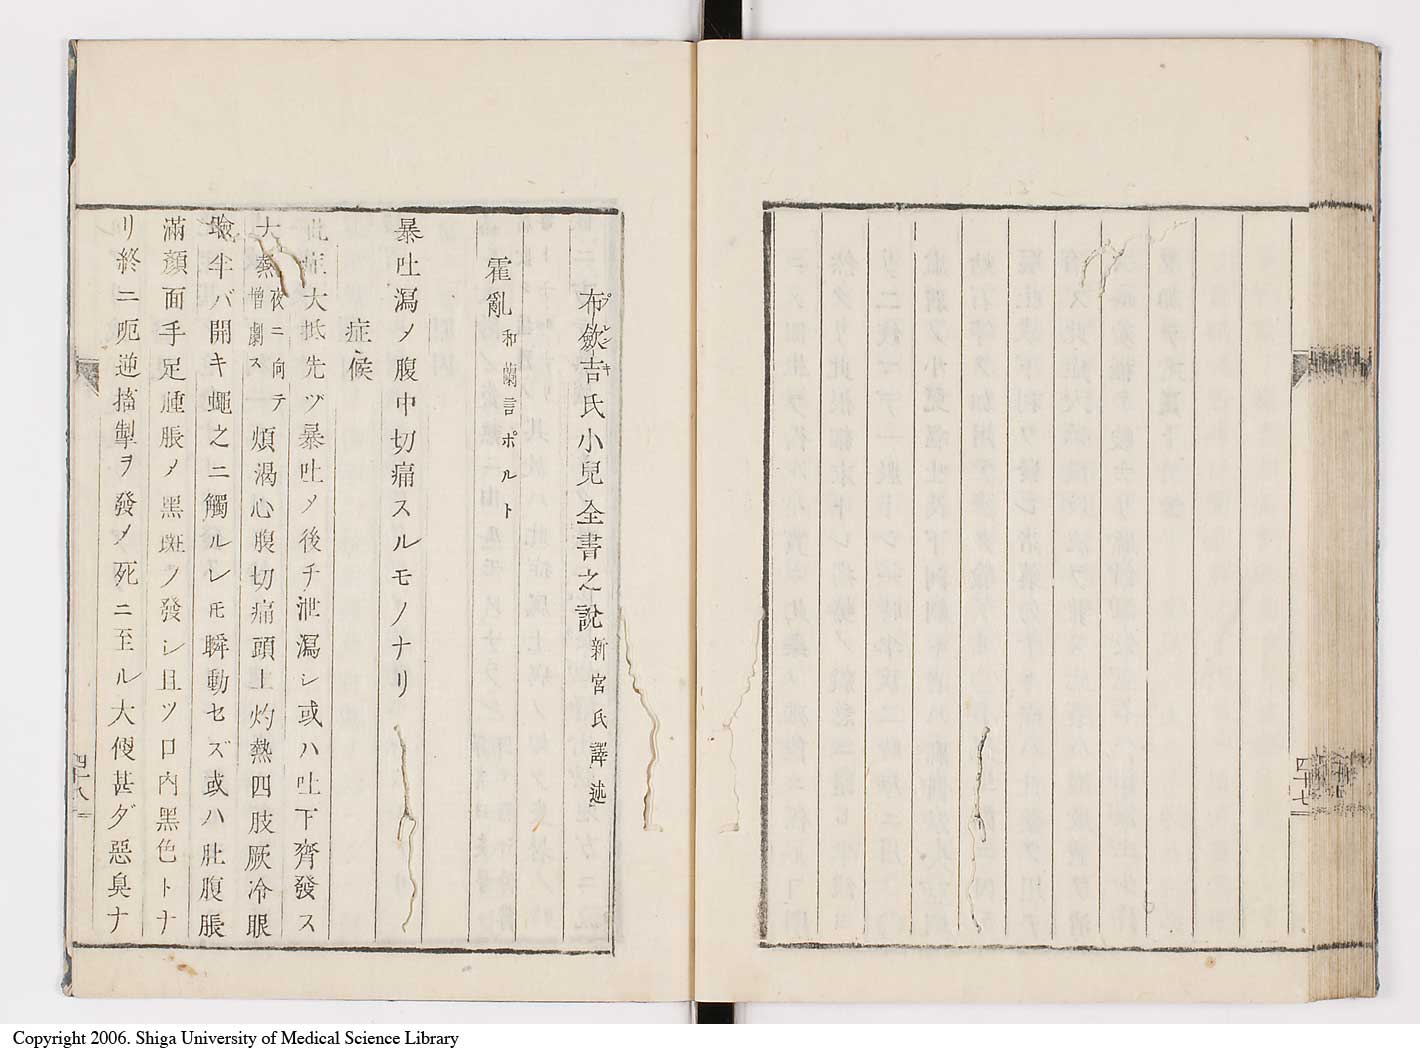 四十七
布歛吉氏小兒全書之說 新宮氏譯述
プレンキ
霍亂 和蘭言ポルト
暴吐瀉ノ腹中切痛スルモノナリ
症候
此症大抵先ヅ暴吐〆後チ泄瀉シ或ハ吐下齊發ス
大熱 夜ニ向テ憎劇ス 煩渴心腹切痛頭上灼熱四肢厥冷眼
瞼半バ開キ蠅之ニ觸ルレ𪜈瞬動セズ或ハ肚腹脹
滿顏面手足腫脹〆黑斑ヲ發シ且ツ口內黑色トナ
リ終ニ呃逆搐掣ヲ發〆死ニ至ル大便甚ダ惡臭ナ
四十八
Copyright 2006. Shiga University of Medical Science Library